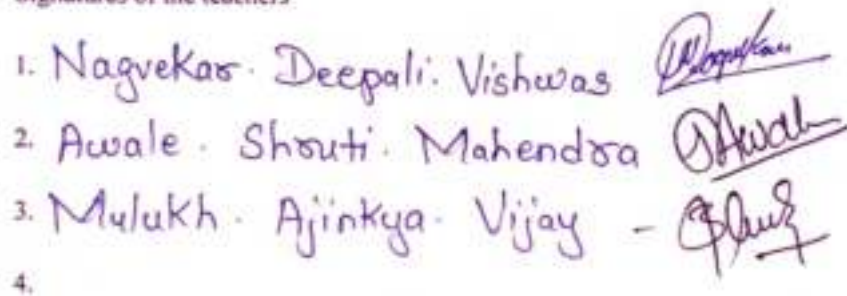 Signatures of the teachers
1. Nagvekar. Deepali. Vishwas
2. Awale. Shruti. Mahendra SAwale
3. Mulukh. Ajinkya. Vijay -
4.